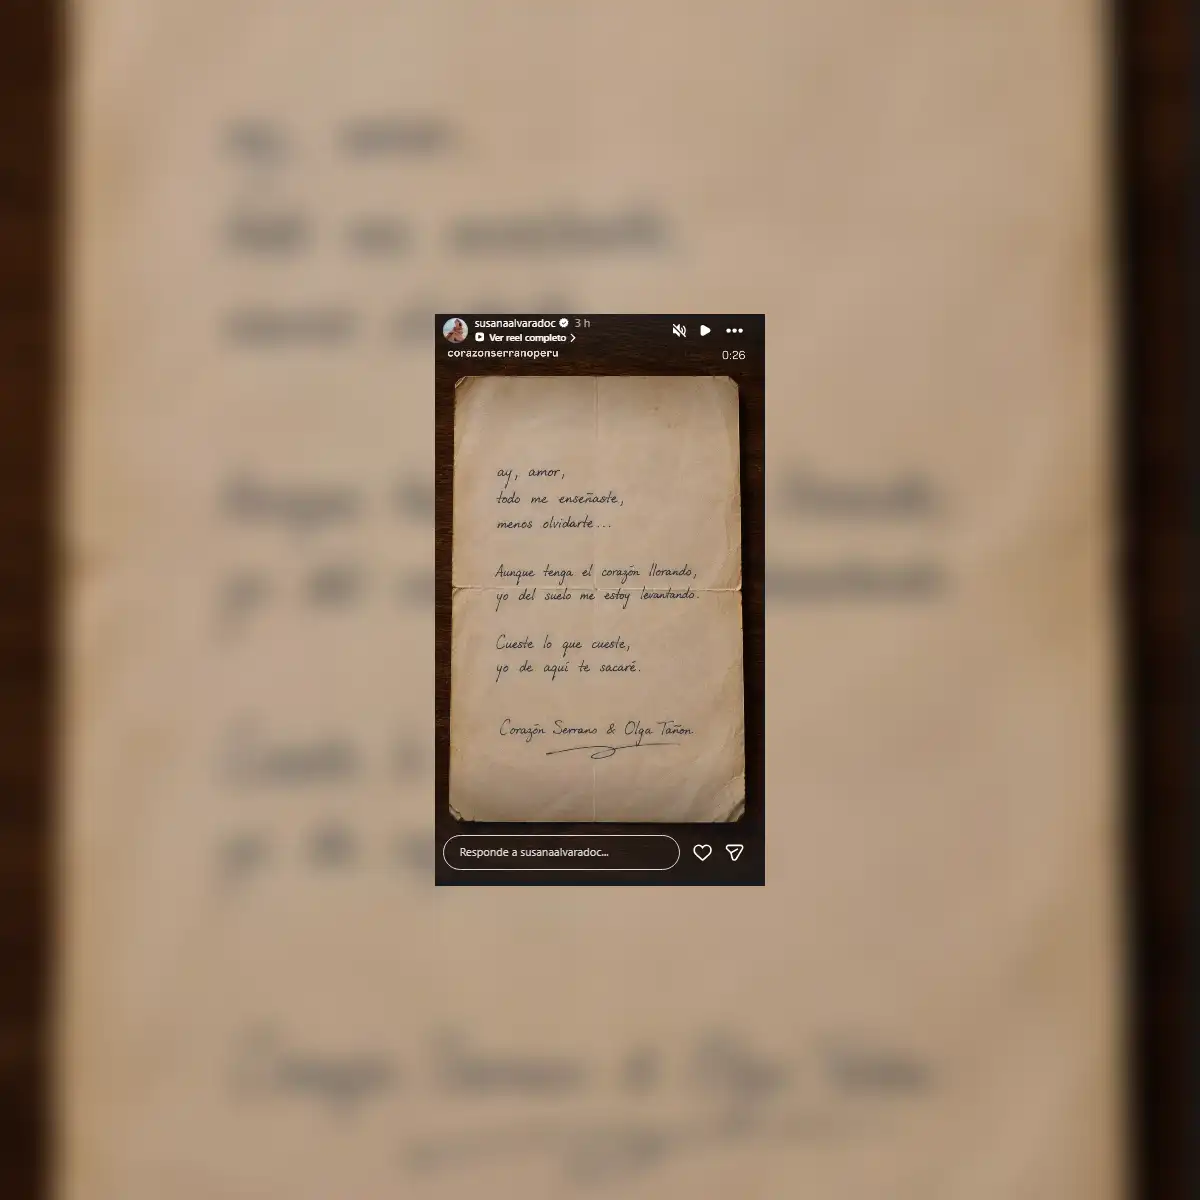 susanaalvaradoc 3 h
Ver reel completo
corazonserranoperu
0:26
ay, amor,
todo me enseñaste,
menos olvidarte...
Aunque tenga el corazón llorando,
yo del suelo me estoy levantando.
Cueste lo que cueste,
yo de aquí te sacaré.
Corazón Serrano & Olga Tañon
Responde a susanaalvaradoc...